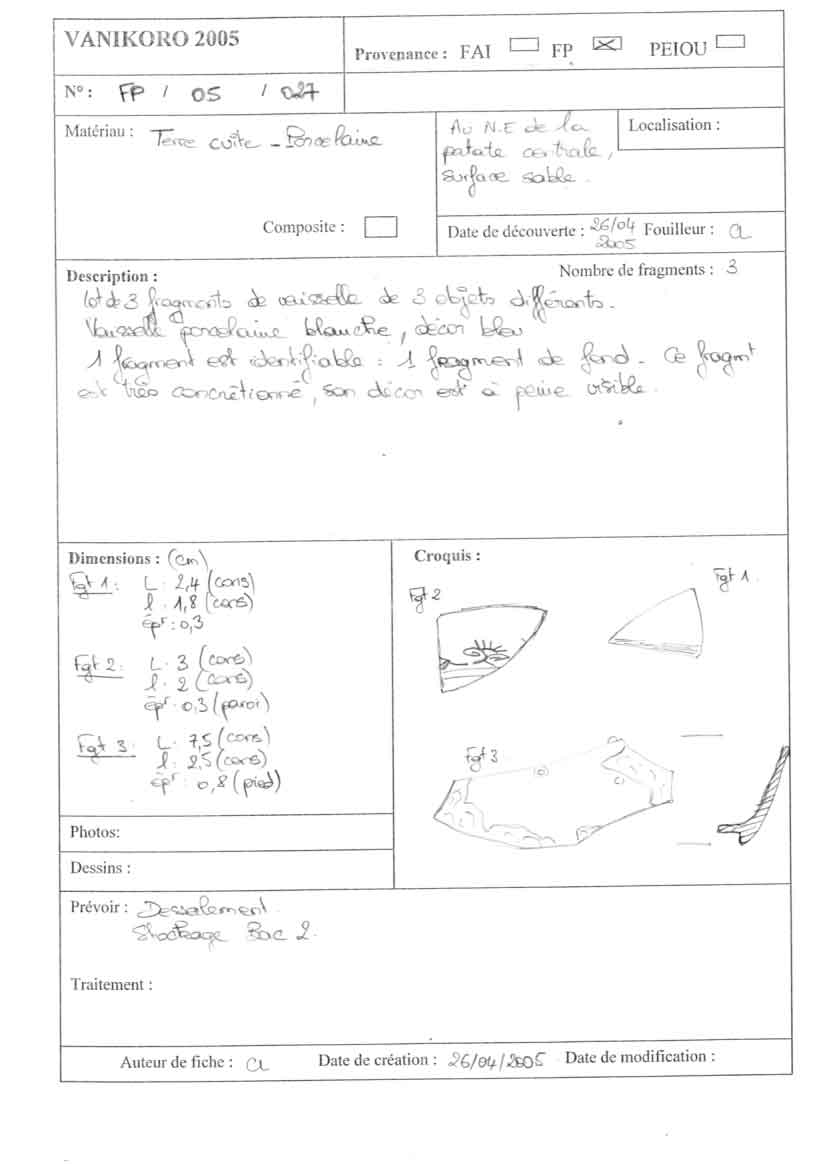 VANIKORO 2005
Provenance : FAI FP PEIOU
N° : FP / 05 / 027
Matériau : Terre cuite - Porcelaine
Composite :
Au N.E de la
patate centrale,
surface sable.
Localisation :
Date de découverte : 26/04
2005
Fouilleur :
Description :
Nombre de fragments : 3
lot de 3 fragments de vaisselle de 3 objets différents.
Vaisselle porcelaine blanche, décor bleu
1 fragment est identifiable : 1 fragment de fond. Ce fragmt
est très concrétionné, son décor est à peine visible.
Dimensions : (cm)
Fgt 1 : L : 2,4 (cons)
l : 1,8 (cons)
épr : 0,3
Fgt 2 : L : 3 (cons)
l : 2 (cons)
épr : 0,3 (paroi)
Fgt 3 : L : 7,5 (cons)
l : 2,5 (cons)
épr : 0,8 (pied)
Photos:
Dessins :
Croquis :
Fgt 1.
Fgt 2
Fgt 3
Prévoir : Dessalement.
Stockage Bac 2.
Traitement :
Auteur de fiche :
Date de création : 26/04/2005
Date de modification :